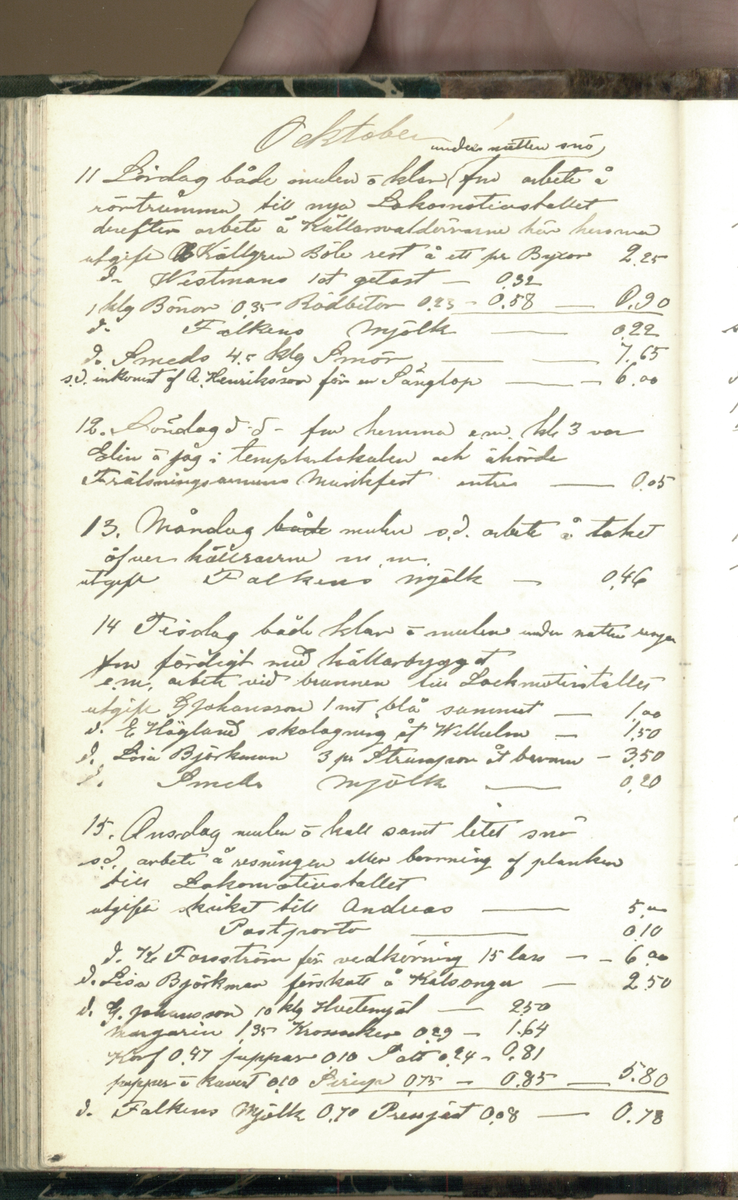 Oktober
under natten snö
11 Lördag både mulen o klar fm arbete å
rörtrumma till nya Lokomotivstallet
derefter arbete å Källarsvaldörrarne här hemma
utgift Källgren Böle rest å ett pr Byxor 2,25
d. Westmans 1 ot getost — 0,32
1 klg Bönor 0,35 Rödbetor 0,23 - 0,58 — 0,90
d. Falkens Mjölk — 0,22
d. Smeds 4,5 klg Smör — 7,65
s.d. inkomst af A. Henriksson för en Sängtop — 6,00
12. Söndag d-d- fm hemma em. kl 3 var
Elin o jag i tempelslokalen och åhörde
Frälsningsarmens Musikfest entre — 0,05
13. Måndag både mulen s.d. arbete å taket
öfver källrarne m.m.
utgift Falkens mjölk — 0,46
14 Tisdag både klar o mulen under natten regn
fm färdigt med källarbygget
e.m. arbete vid brunnen till Lockmotivstallet
utgift G Johansson 1 mt blå sammet — 1,00
d. E Höglund skolagning åt Wilhelm — 1,50
d. Lisa Björkman 3 pr Strumpor åt barnen — 3,50
d. Smeds Mjölk — 0,20
15. Onsdag mulen o kall samt litet snö
s.d. arbete å resningen eller borrning af planken
till Lokomotivstallet
utgift skikat till Andreas — 5,00
Postporto — 0,10
d. K Forsström för vedkörning 15 lass — 6,00
d. Lisa Björkman förskott å Kalsonger — 2,50
d. G. Johansson 10 klg Hvetemjöl — 2,50
Margarin 1,35 0,29 — 1,64
Korf 0,47 0,10 0,24 - 0,81
papper o kuvert 0,10 Sirap 0,75 — 0,85 — 5,80
d. Falkens Mjölk 0,70 Pressjäst 0,08 — 0,78